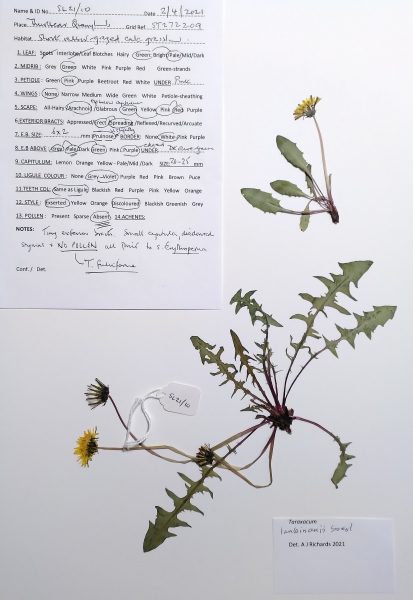 Name & ID No. SL21/10 Date 2/4/2021
Place. Quarry Grid Ref ST272209
Habitat Short grazed calc
1. LEAF: Spots Interlobe/Leaf Blotches Hairy Green Bright Pale/Mid/Dark
2. MIDRIB: Grey Green White Pink Purple Red Green-strands
3. PETIOLE: Green Pink Purple Beetroot Red White UNDER Pink
4. WINGS: None Narrow Medium Wide Green White Petiole-sheathing
5. SCAPE: All-Hairs Arachnoid Glabrous Green Yellow Pink Red Purple
6. EXTERIOR BRACTS: Appressed/Erect/Spreading/Reflexed/Recurved/Arcuate
7. E.B. SIZE: 6x2 mm Pruinose BORDER: None White Pink Purple
8. E.B ABOVE: Grey Pale/Dark Green Pink Purple UNDER
9. CAPITULUM: Lemon Orange Yellow - Pale/Mid/Dark size 20-25 mm
10. LIGULE COLOUR: None Grey-Violet Purple Red Pink Brown Puce
11. TEETH COL: Same as Ligule Blackish Red Purple Pink Yellow Orange
12. STYLE: Exserted Yellow Orange Discoloured Blackish Greenish Grey
13. POLLEN: Present Sparse Absent 14. ACHENES:
NOTES: Tiny exterior bracts. Small capitula, discoloured
stigmas & NO POLLEN all point to s. Erythrosperma
Cont./ Det.
SL21/10
Taraxacum
Det. A J Richards 2021